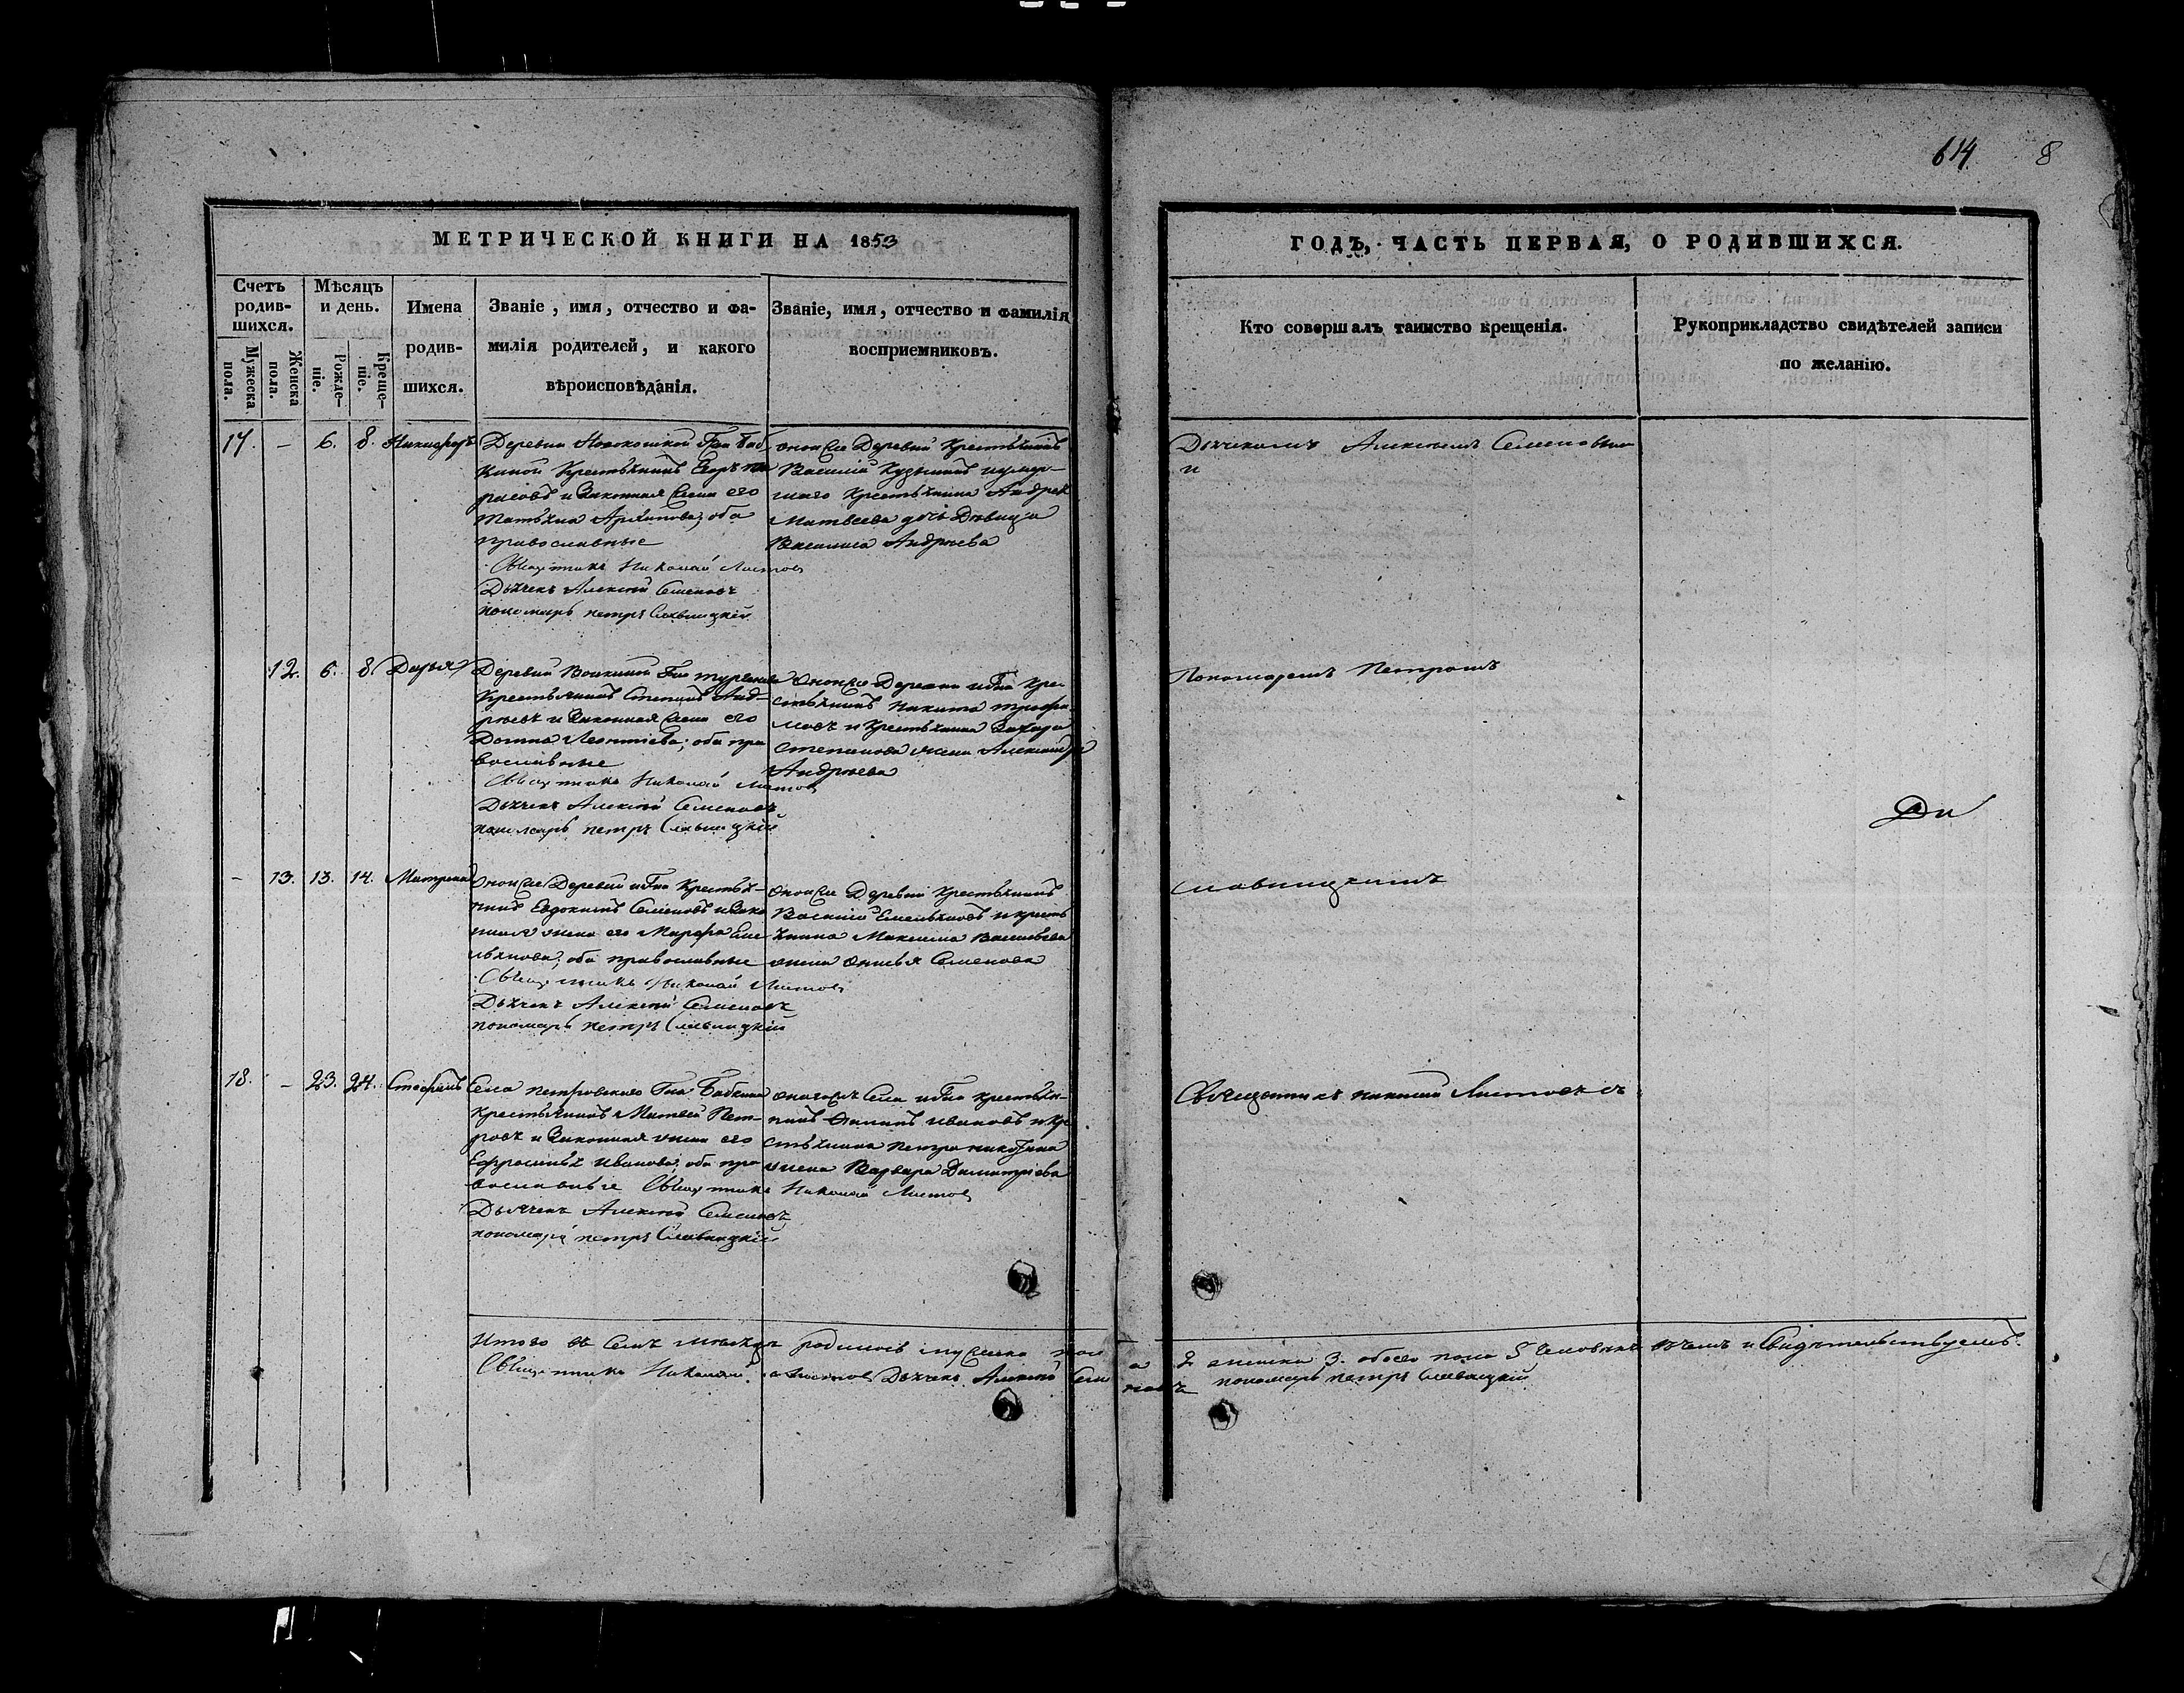 614. 8
МЕТРИЧЕСКОЙ КНИГИ НА 1853
ГОДЪ, ЧАСТЬ ПЕРВАЯ, О РОДИВШИХСЯ.
Счетъ родив-
шихся.
Мужеска
пола.
Женска
пола.
Мѣсяцъ
и день.
Рожде-
ніе.
Креще-
ніе.
Имена
родив-
шихся.
Званіе, имя, отчество и фа-
милія родителей, и какого
вѣроисповѣданія.
Званіе, имя, отчество и фамилія
восприемниковъ.
Кто совершалъ таинство крещенія.
Рукоприкладство свидѣтелей записи
по желанію.
17. – 6. 8. Никифоръ
Деревни
Крестьянинъ Егоръ
и Законная жена его
Татьяна Архипова, оба
православные
Священникъ Николай Листовъ
Дьячекъ Алексѣй Семеновъ
пономарь петръ Славницкій
оной же Деревни Крестьянинъ
Василій Кузьминъ и умер-
шаго Крестьянина Андрея
Матвеева дочь Дѣвица
Василиса Андреева
Дьячекомъ Алексѣемъ Семеновымъ
и
12. 6. 8. Дарья
Деревни
Крестьянинъ Степанъ Анд-
реевъ и Законная жена его
Домна Леонтіева, оба пра
вославные
Священникъ Николай Листовъ
Дьячекъ Алексѣй Семеновъ
пономарь петръ Славницкій
оной же Деревни и Гна Кре-
стьянинъ Никита Трофи-
мовъ и Крестьянина Захара
Степанова жена Александра
Андреева
Пономаремъ Петромъ
Ди
– 13. 13. 14. Матрена
Оной же Деревни и Гна Крестья-
нинъ Евдокимъ Семеновъ и Зако
нная жена его Марфа Еме
льянова, оба православные
Священникъ Николай Листовъ
Дьячекъ Алексѣй Семеновъ
пономарь петръ Славницкій
оной же Деревни Крестьянинъ
Василій Емельяновъ и кресть
янина Максима Васильева
жена Анисья Семенова
Славницкимъ
18. – 23. 24. Стефанъ
Села петровскаго Гна Бабкина
Крестьянинъ Матвей Пет-
ровъ и Законная жена его
Ефросинья Иванова, оба пра
вославные Священникъ Николай Листовъ
Дьячекъ Алексѣй Семеновъ
пономарь петръ Славницкій
онагожъ Села и Гна крестья-
нинъ Ивановъ и Кре
стьянина Петра
жена Варвара Димитріева
Священникъ николай Листовъ съ
Итого въ семъ мѣсяцѣ родилось мужеска пола 2 женска 3. обоего пола 5 человѣкъ въ чемъ и Свидѣтельствуемъ.
Священникъ Николай Листовъ Дьячекъ Алексѣй Семеновъ пономарь петръ Славницкій